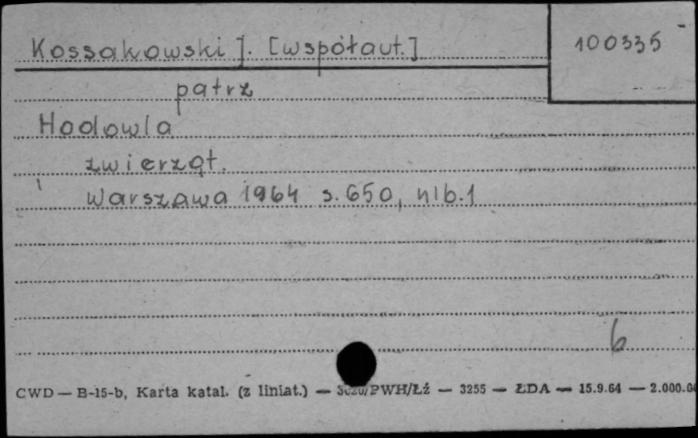 Kossakowski J. [współaut.]
100335
patrz
Hodowla
zwierząt.
Warszawa 1964 s. 650, nlb. 1
6
CWD — B-15-b, Karta katal. (z liniat.) — /PWH/Łź — 3255 — ŁDA — 15.9.64 — 2.000.0